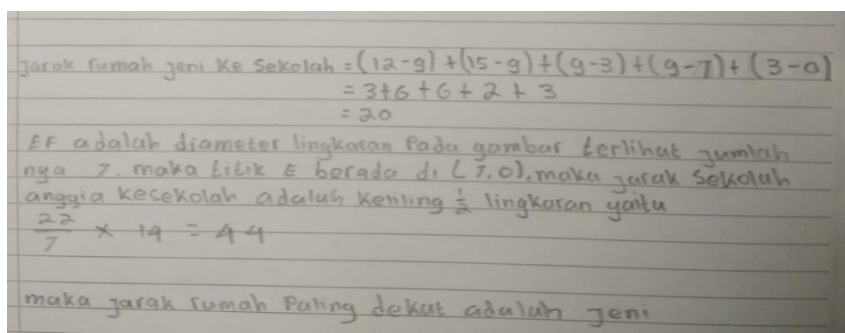 jarak rumah jeni ke sekolah = (12-9)+(15-9)+(9-3)+(9-7)+(3-0)
= 3+6+6+2+3
= 20
EF adalah diameter lingkaran Pada gambar terlihat jumlah
nya 7. maka titik E berada di (7,0), maka jarak sekolah
anggia kesekolah adalah keliling ½ lingkaran yaitu
22/7 × 14 = 44
maka jarak rumah Paling dekat adalah jeni